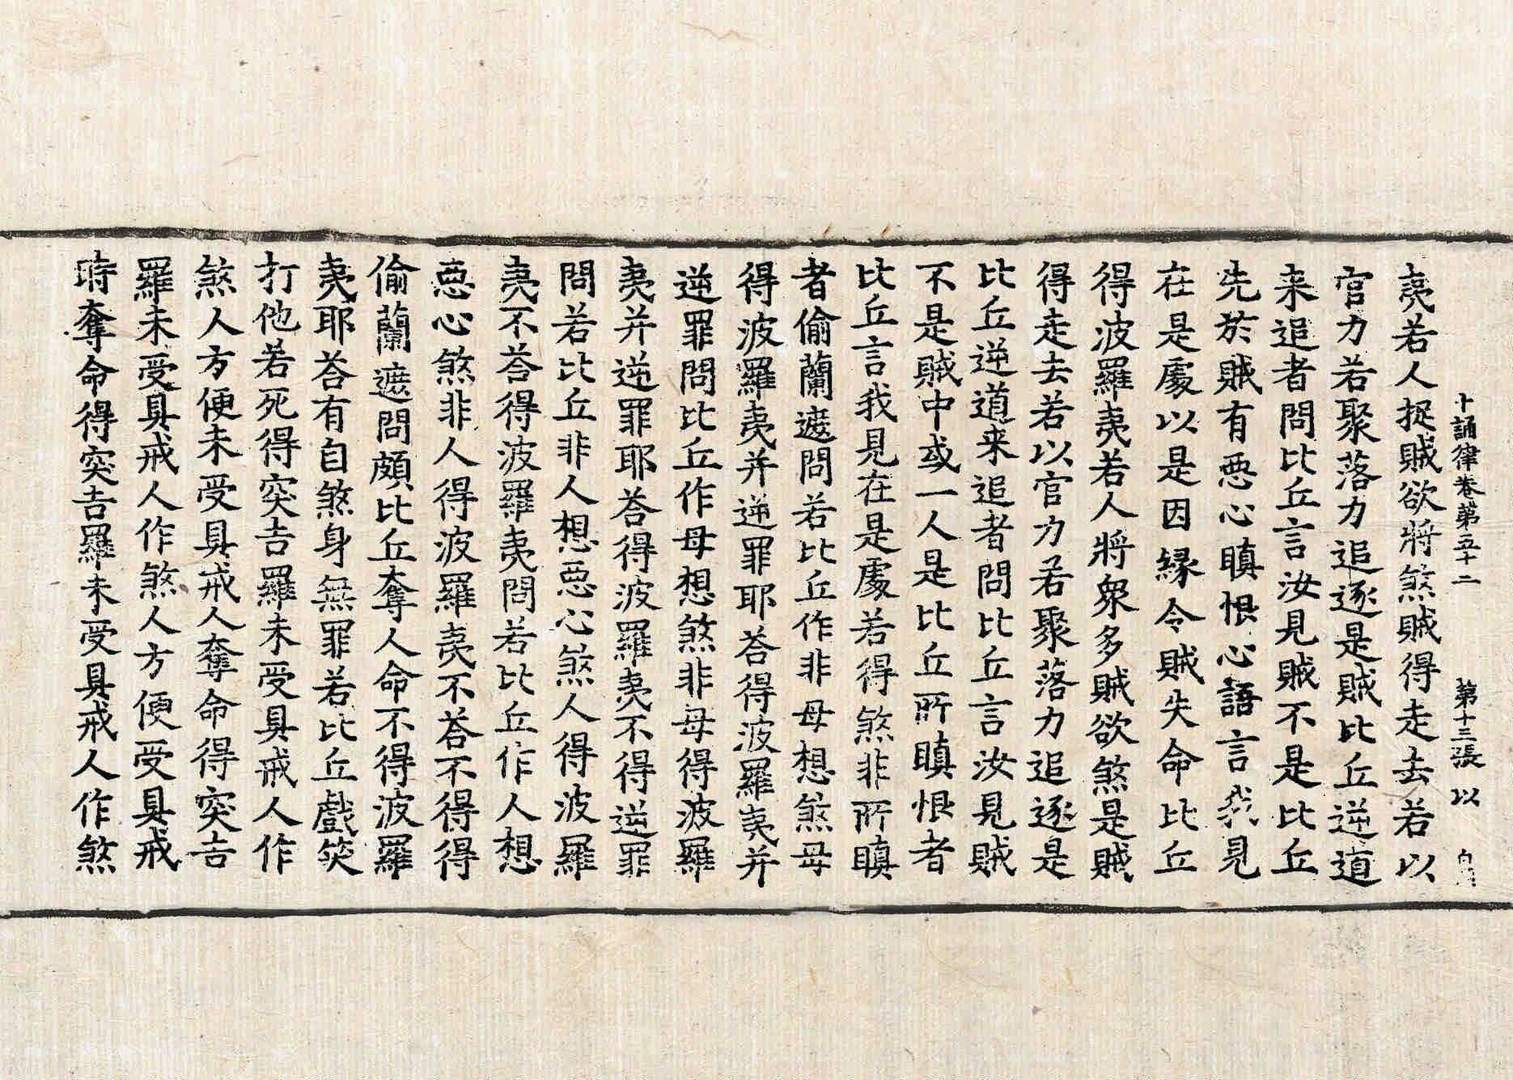 十誦律卷第五十二　第十三張　以
夷若人捉賊欲將煞賊得走去若以
官力若聚落力追逐是賊比丘逆道
来追者問比丘言汝見賊不是比丘
先於賊有惡心瞋恨心語言我見
在是處以是因縁令賊失命比丘
得波羅夷若人將衆多賊欲煞是賊
得走去若以官力若聚落力追逐是
比丘逆道来追者問比丘言汝見賊
不是賊中或一人是比丘所瞋恨者
比丘言我見在是處若得煞非所瞋
者偷蘭遮問若比丘作非母想煞母
得波羅夷并逆罪耶荅得波羅夷并
逆罪問比丘作母想煞非母得波羅
夷并逆罪耶荅得波羅夷不得逆罪
問若比丘非人想惡心煞人得波羅
夷不荅得波羅夷問若比丘作人想
惡心煞非人得波羅夷不荅不得得
偷蘭遮問頗比丘奪人命不得波羅
夷耶荅有自煞身無罪若比丘戲笑
打他若死得突吉羅未受具戒人作
煞人方便未受具戒人奪命得突吉
羅未受具戒人作煞人方便受具戒
時奪命得突吉羅未受具戒人作煞